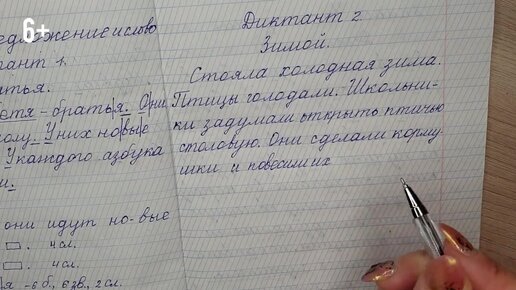 6+
едложение и слово
ант 1.
атья.
етя - братья. Они
колу. У них новые
У каждого азбука
и.
они идут но-вые
4 сл.
4 сл.
я - 6 б., 6 зв., 2 сл.
Диктант 2.
Зимой.
Стояла холодная зима.
Птицы голодали. Школьни-
ки задумали открыть птичью
столовую. Они сделали корму-
шки и повесили их